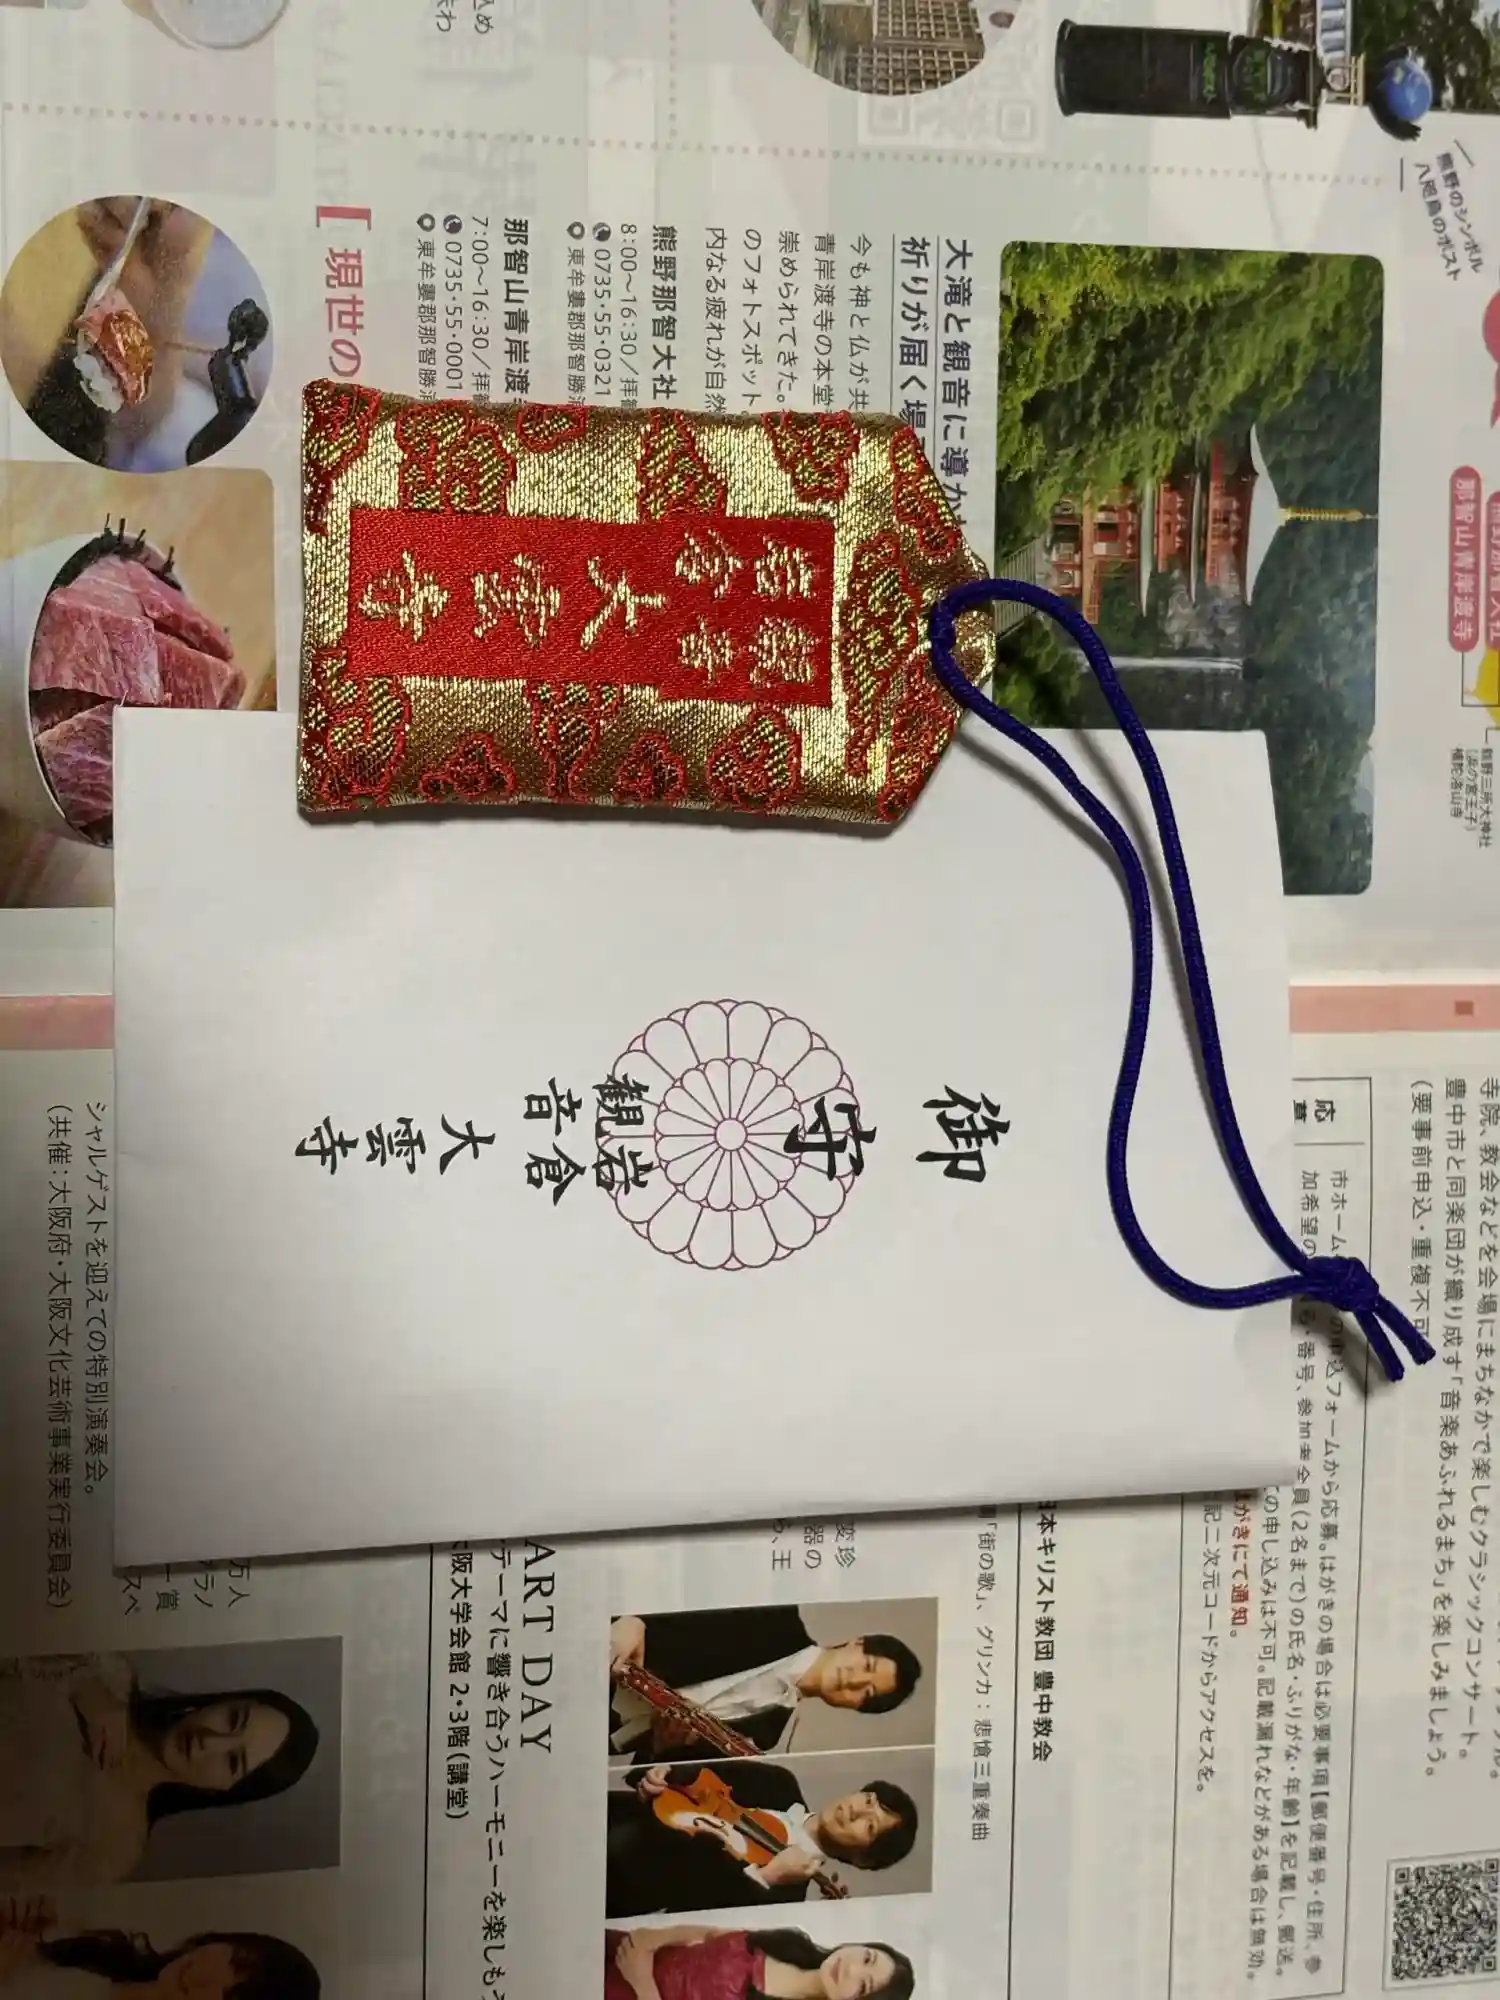 岩倉
観音
大雲寺
御守
岩倉
観音
大雲寺
熊野のシンボル
八咫烏のポスト
那智山青岸渡寺
熊野三所大神社
(浜の宮王子)
補陀洛山寺
大滝と観音に導か
祈りが届く場
今も神と仏が共
青岸渡寺の本堂
崇められてきた。
のフォトスポット。
内なる疲れが自然
熊野那智大社
8:00〜16:30/拝観
0735・55・0321
東牟婁郡那智勝浦
那智山青岸渡
7:00〜16:30/拝観
0735・55・0001
東牟婁郡那智勝
[現世の
寺院、教会などを会場にまちなかで楽しむクラシックコンサート。
豊中市と同楽団が織り成す「音楽あふれるまち」を楽しみましょう。
(要事前申込・重複不可
応
市ホーム
の申込フォームから応募。はがきの場合は必要事項【郵便番号・住所、参
加希望の
番号、参加者全員(2名まで)の氏名・ふりがな・年齢】を記載し、郵送。
の申し込みは不可。記載漏れなどがある場合は無効。
はがきにて通知。
記二次元コードからアクセスを。
日本キリスト教団 豊中教会
「街の歌」、グリンカ:悲愴三重奏曲
変珍
器の
ら、王
ART DAY
テーマに響き合うハーモニーを楽しもう
大阪大学会館 2・3階(講堂)
万人
ラノ
一賞
スペ
シャルゲストを迎えての特別演奏会。
(共催:大阪府・大阪文化芸術事業実行委員会)